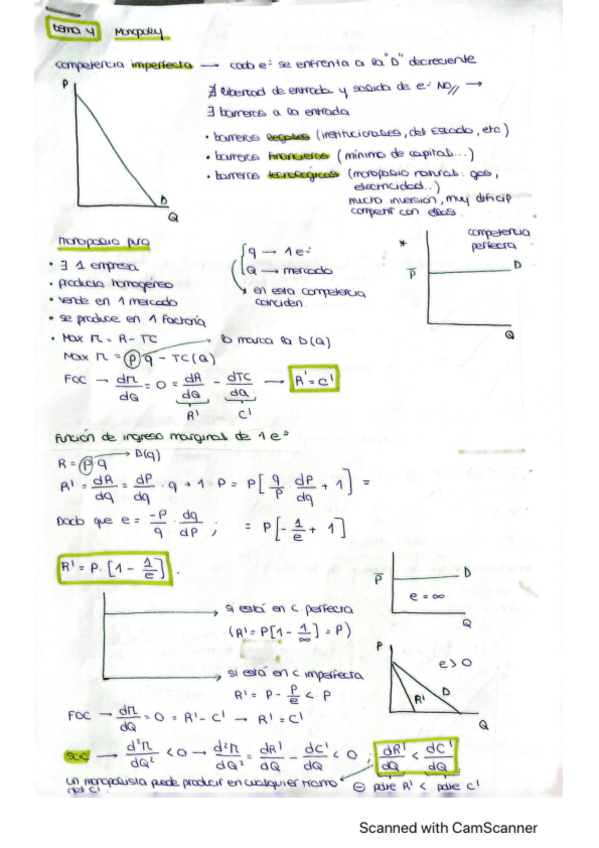 tema 4 Monopoly
competencia imperfecta → cada e² se enfrenta a la "D" decreciente
P
∄ libertad de entrada y salida de e² NO// →
∃ barreras a la entrada
• barreras legales (institucionales, del Estado, etc)
• barreras financieras (mínimo de capital...)
• barreras tecnológicas (monopolio natural: gas,
electricidad..)
micro inversión, muy dificil
competir con ellos.
D
Q
monopolio puro
• ∃ 1 empresa
• producto homogéneo
• vende en 1 mercado
• se produce en 1 factoría
q → 1 e²
Q → mercado
en esta competencia
coinciden.
* competencia
perfecta
P̄ D
Q
• Max π = R - TC → lo marca la D(Q)
Max π = p q - TC(Q)
FOC → dπ/dQ = 0 = dR/dQ - dTC/dQ → R' = C'
R' C'
Función de ingreso marginal de 1 e²
R = p q → D(q)
R' = dR/dq = dP/dq · q + 1 · P = P[q/P · dP/dq + 1] =
Dado que e = -P/q · dq/dP ; = P[-1/e + 1]
R' = P · [1 - 1/e].
P̄ D
e = ∞
Q
→ si está en c. perfecta
(R' = P[1 - 1/∞] = P)
→ si está en c imperfecta
R' = P - P/e < P
P
e > 0
R' D
Q
FOC → dπ/dQ = 0 = R' - C' → R' = C'
SOC → d²π/dQ² < 0 → d²π/dQ² = dR'/dQ - dC'/dQ < 0 ; dR'/dQ < dC'/dQ
un monopolista puede producir en cualquier tramo ⊖ pdte R' < pdte C'
del C'.
Scanned with CamScanner